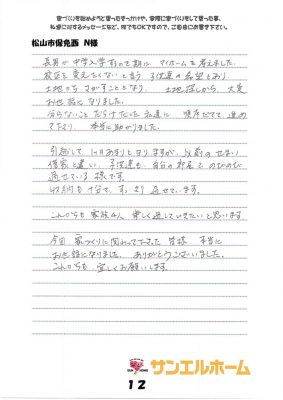 家づくりを始めようと思ったきっかけや、実際に家づくりをして思った事、
私達に対するメッセージなど、何でもOKですので、ご自由にお書き下さい。
松山市保免西 N様
長男が中学入学するので期に マイホームを考えました。
校区を変えたくないと言う 子供達の希望どおり
土地からさがすこととなり、土地探しから、大変
お世話になりました。
分らないことだらけだった私達に 順序だてて進め
て下さり、本当に助かりました。
引越して 1ヶ月あまりとなりますが、以前のせまい
借家と違い、子供達も 自分の部屋で のびのび
過せている様です。
収納も十分で、すっきり 過せています。
これからも 家族4人 楽しく過していきたいと思います。
今回 家づくりに関わって下さった 皆様 本当に
お世話になりました。ありがとうございました。
これからも 宜しくお願いします。
SUN L HOME
サンエルホーム
12